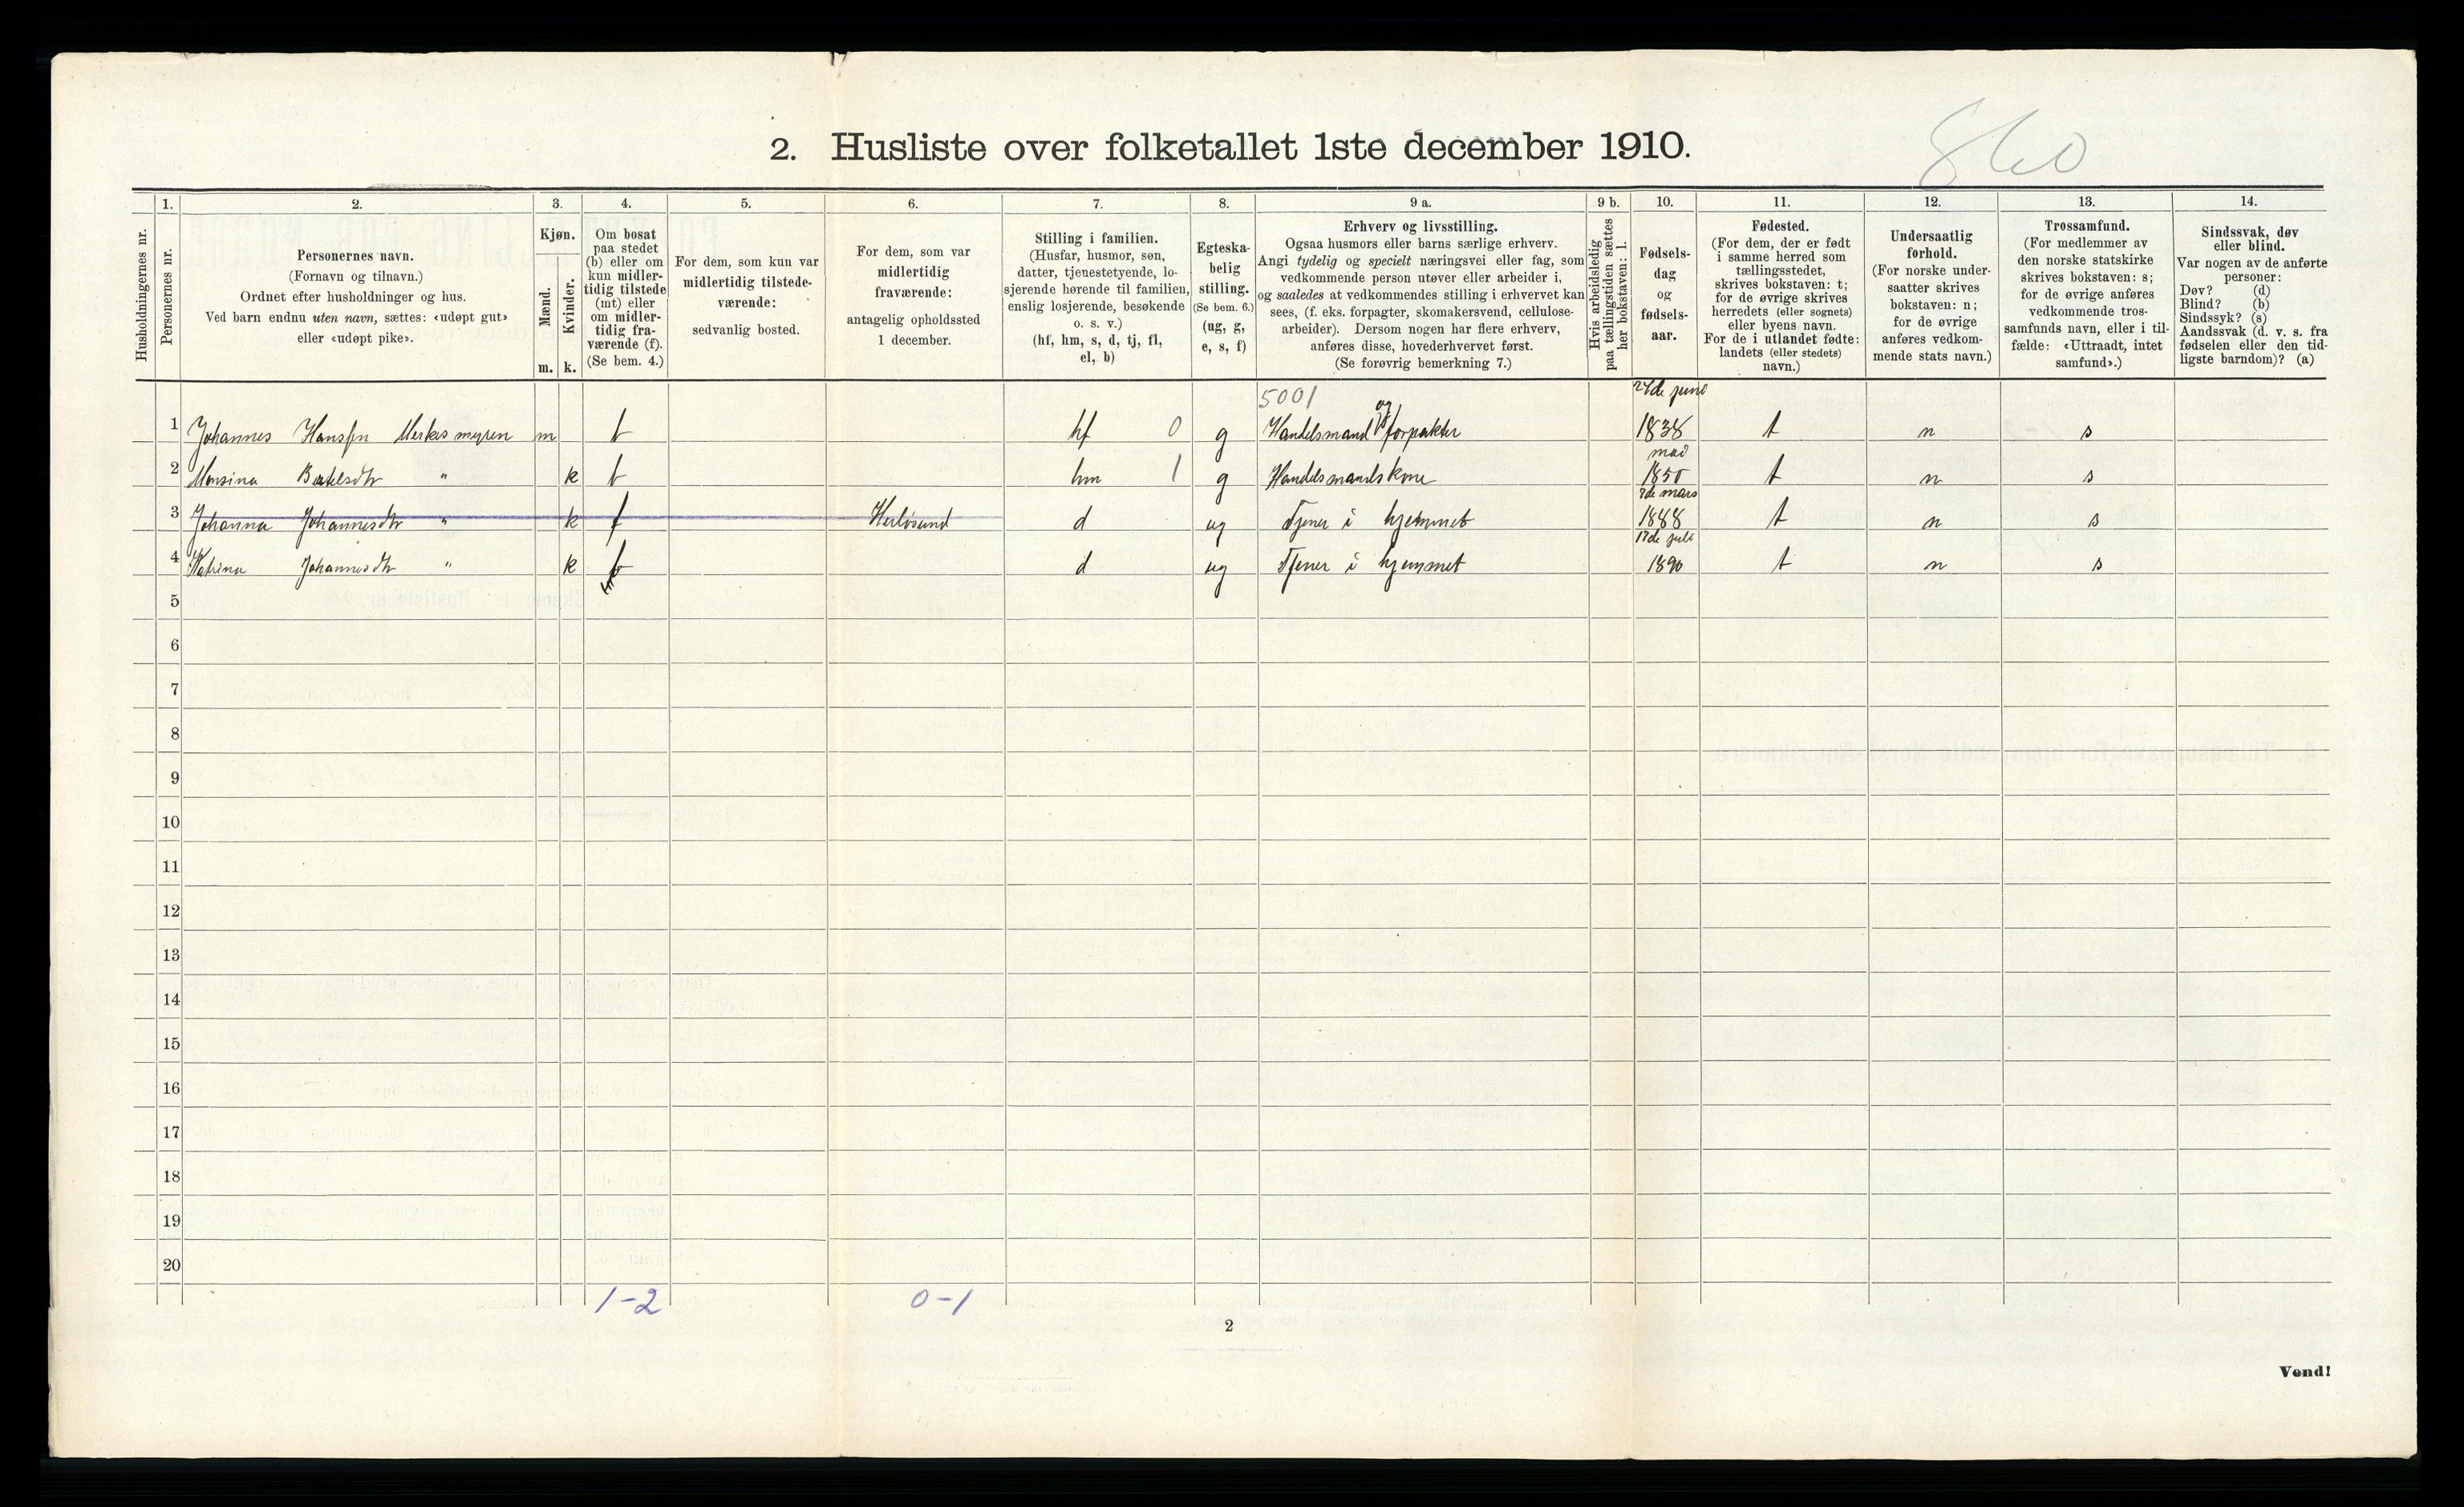 860
2. Husliste over folketallet 1ste december 1910.
Husholdningernes nr.
1. Personernes nr.
2. Personernes navn.
(Fornavn og tilnavn.)
Ordnet efter husholdninger og hus.
Ved barn endnu uten navn, sættes: «udøpt gut»
eller «udøpt pike».
3. Kjøn.
Mænd. m.
Kvinder. k.
4. Om bosat
paa stedet
(b) eller om
kun midler-
tidig tilstede
(mt) eller
om midler-
tidig fra-
værende (f).
(Se bem. 4.)
5. For dem, som kun var
midlertidig tilstede-
værende:
sedvanlig bosted.
6. For dem, som var
midlertidig
fraværende:
antagelig opholdssted
1 december.
7. Stilling i familien.
(Husfar, husmor, søn,
datter, tjenestetyende, lo-
sjerende hørende til familien,
enslig losjerende, besøkende
o. s. v.)
(hf, hm, s, d, tj, fl,
el, b)
8. Egteska-
belig
stilling.
(Se bem. 6.)
(ug, g,
e, s, f)
9 a. Erhverv og livsstilling.
Ogsaa husmors eller barns særlige erhverv.
Angi tydelig og specielt næringsvei eller fag, som
vedkommende person utøver eller arbeider i,
og saaledes at vedkommendes stilling i erhvervet kan
sees, (f. eks. forpagter, skomakersvend, cellulose-
arbeider). Dersom nogen har flere erhverv,
anføres disse, hovederhvervet først.
(Se forøvrig bemerkning 7.)
9 b. Hvis arbeidsledig
paa tællingstiden sættes
her bokstaven: l.
10. Fødsels-
dag
og
fødsels-
aar.
11. Fødested.
(For dem, der er født
i samme herred som
tællingsstedet,
skrives bokstaven: t;
for de øvrige skrives
herredets (eller sognets)
eller byens navn.
For de i utlandet fødte:
landets (eller stedets)
navn.)
12. Undersaatlig
forhold.
(For norske under-
saatter skrives
bokstaven: n;
for de øvrige
anføres vedkom-
mende stats navn.)
13. Trossamfund.
(For medlemmer av
den norske statskirke
skrives bokstaven: s;
for de øvrige anføres
vedkommende tros-
samfunds navn, eller i til-
fælde: «Uttraadt, intet
samfund».)
14. Sindssvak, døv
eller blind.
Var nogen av de anførte
personer:
Døv? (d)
Blind? (b)
Sindssyk? (s)
Aandssvak (d. v. s. fra
fødselen eller den tid-
ligste barndom)? (a)
5001
1 Johannes Hansen Merkesmyren m b hf 0 g Handelsmand og forpakter 24de juni 1838 t n s
2 Monsina Bertelsdtr " k b hm 1 g Handelsmandskone mai 1850 t n s
3 Johanna Johannesdtr " k f Herløsund d ug Tjener i hjemmet 7de mars 1888 t n s
4 Katrina Johannesdtr " k b d ug Tjener i hjemmet 17de juli 1890 t n s
5
6
7
8
9
10
11
12
13
14
15
16
17
18
19
20
1-2 0-1
2
Vend!